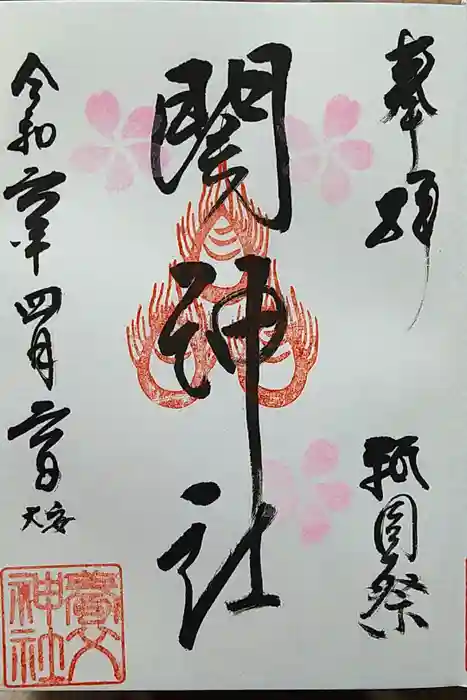 奉拝
神社
祇園祭
令和六年四月六日
大安
神社